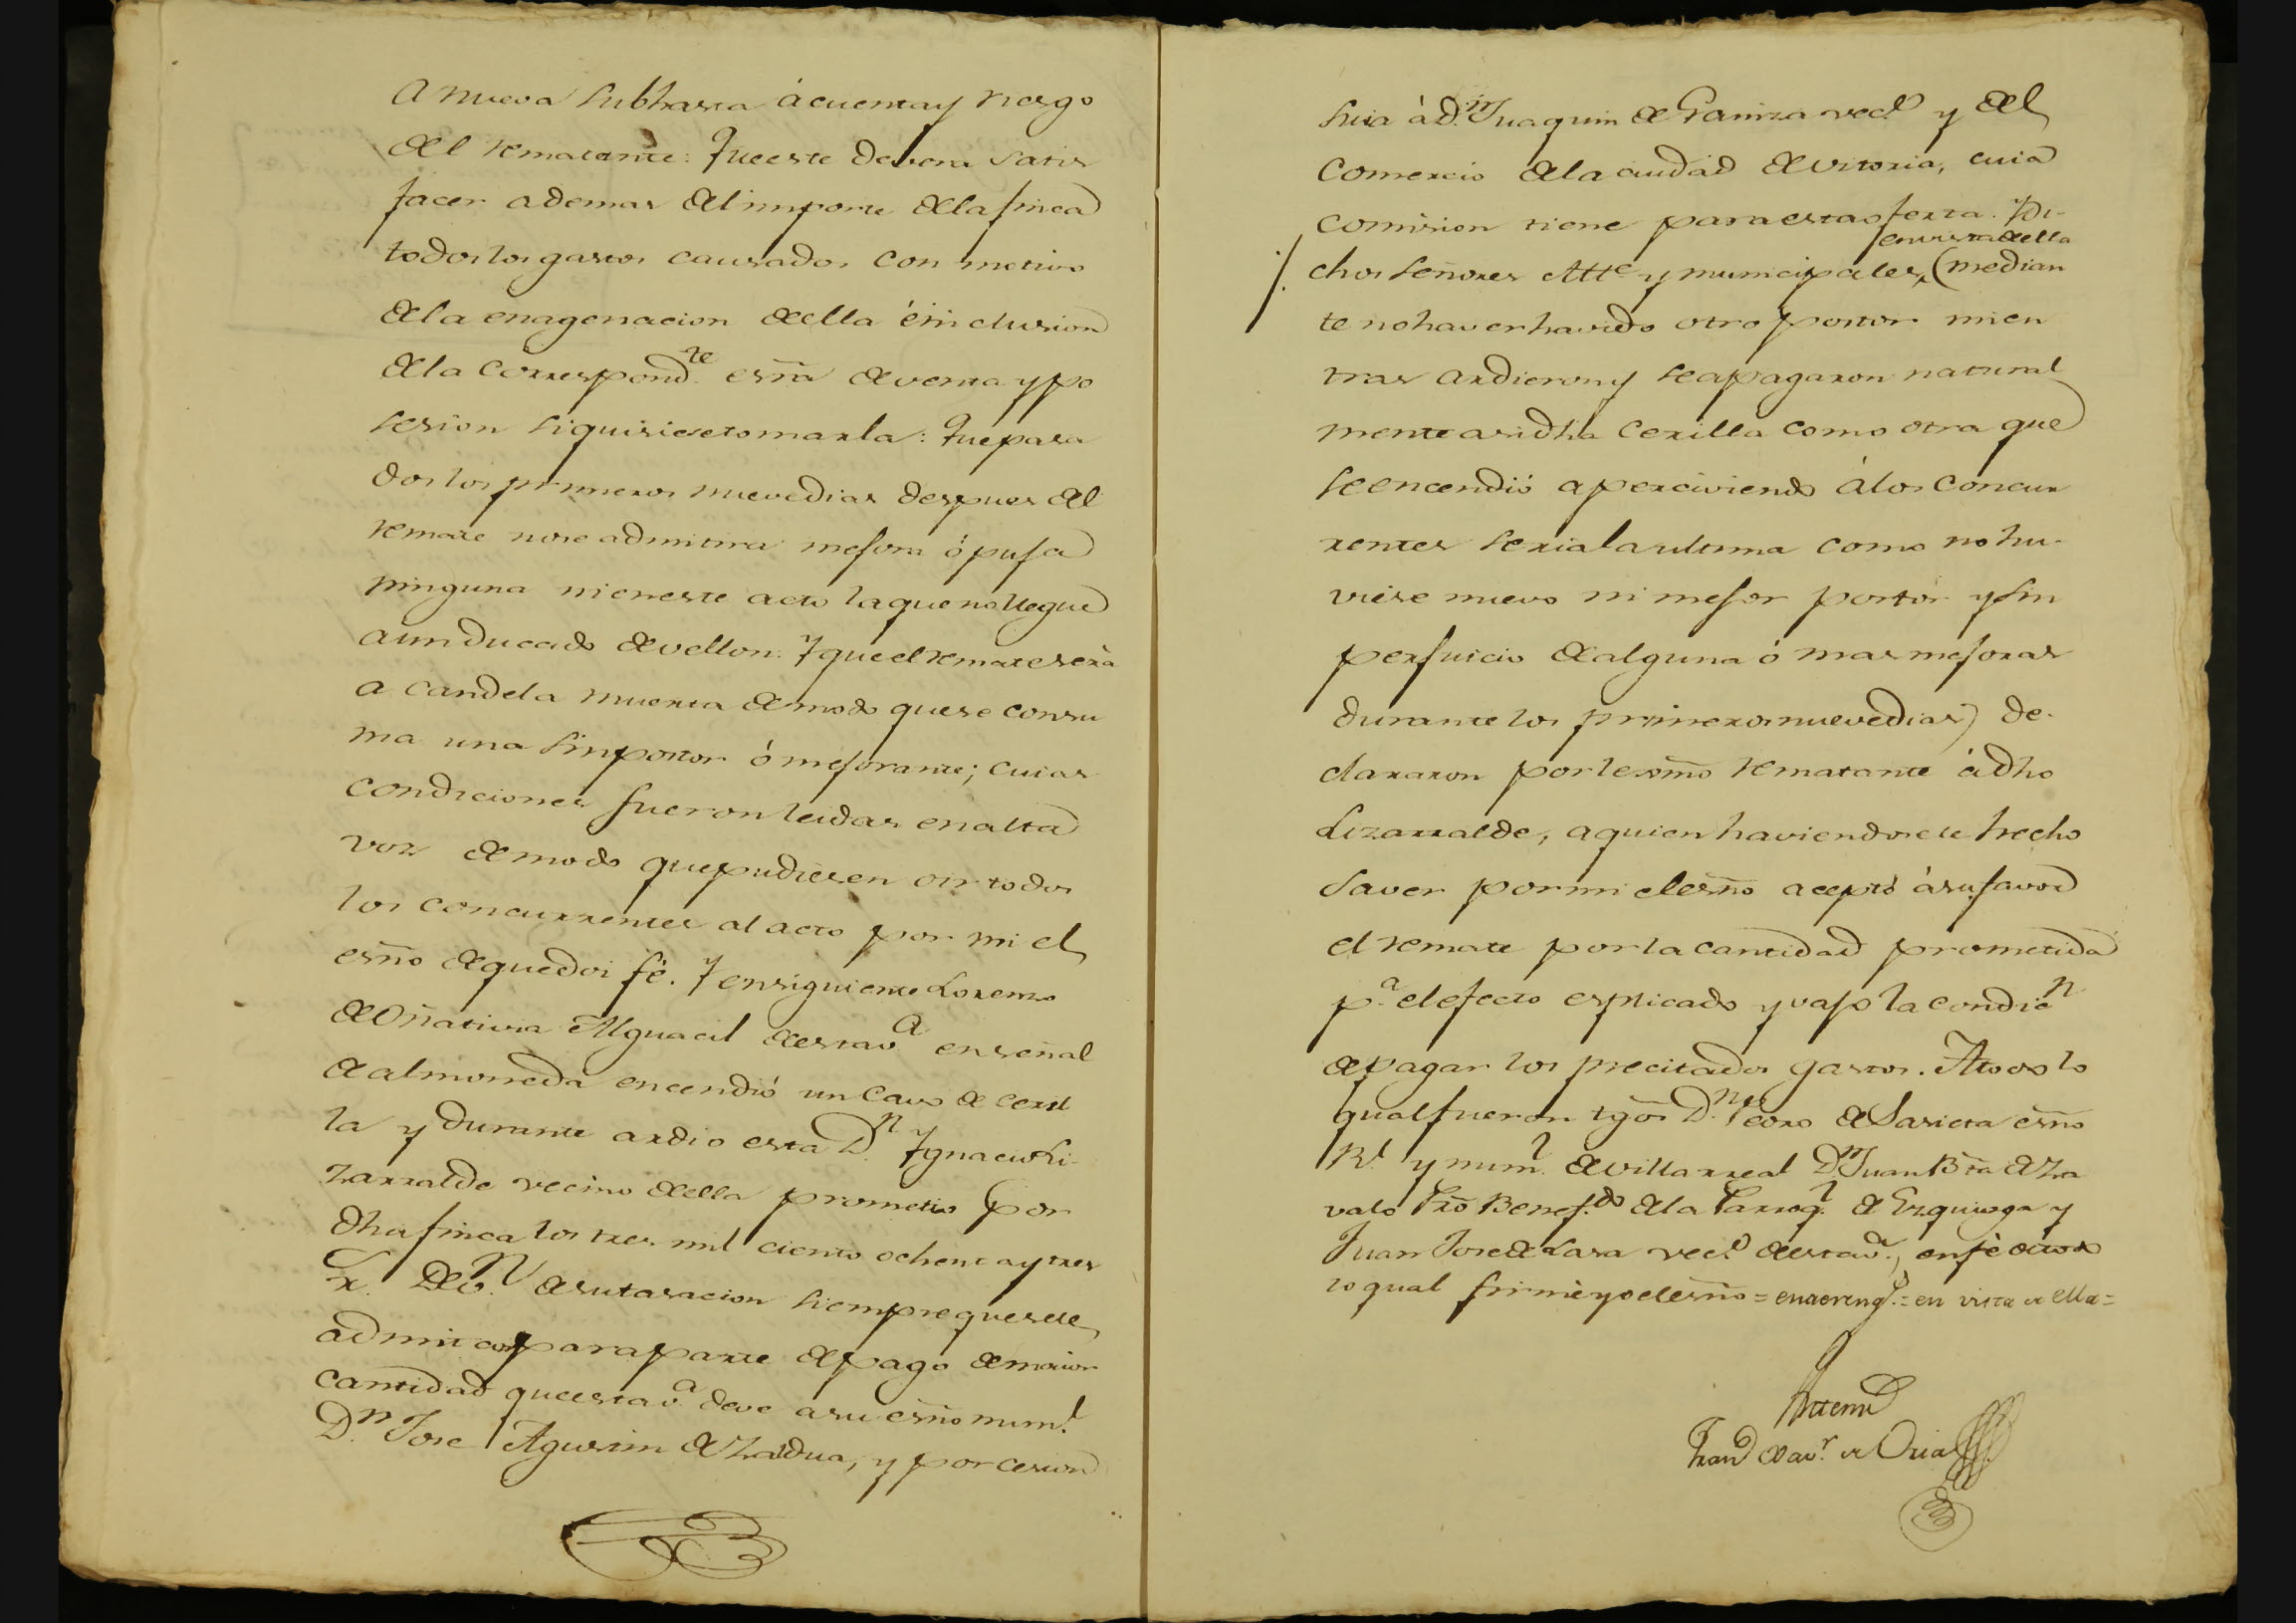 a nueva subhasta á cuenta y riesgo
del rematante: Que este devera satis
facer ademas del importe de la finca
todos los gastos causados con motivo
de la enagenacion de ella é inclusion
de la correspond.te esrã de venta y po
sesion si quisiese tomarla: Que pasa
dos los primeros nueve dias despues del
remate no se admitira mejora ó puja
ninguna ni en este acto la que no llegue
a un ducado de vellon. Y que el remate será
a candela muerta de modo que se consu
ma una sin postor ó mejorante; cuias
condiciones fueron leidas en alta
voz de modo que pudiesen oir todos
los concurrentes al acto por mi el
esño de que doi fé. Y en siguiente Lorenzo
de Oñativia Alguacil de esta v.a en señal
de almoneda encendió un cavo de ceril
la y durante ardio esta D.n Ygnacio Li
zarralde vecino de ella prometio por
dha finca los tres mil ciento ochenta y tres
r.s de v.n de su tasacion siempre que se le
admita para parte de pago de maior
cantidad que esta v.a deve a su esño num.l
D.n Jose Agustin de Zaldua, y por cesion
suia á d.n Juaquin de Ganiza vec.o y del
comercio de la ciudad de Vitoria, cuia
comision tiene para esta oferta. Di-
en vista de ella
chos señores Alt.e y municipales, (median
te no haver havido otro postor mien
tras ardieron y se apagaron natural
mente asi dha cerilla como otra que
se encendió aperciviendo á los concur
rentes seria la ultima como no hu-
viese nuevo ni mejor postor y sin
perjuicio de alguna ó mas mejoras
durante los primeros nueve dias) de-
clararon por lexmõ rematante á dho
Lizarralde, a quien haviendosele hecho
saver por mi el esño aceptó á su favor
el remate por la cantidad prometida
p.a el efecto esplicado y vajo la condic.n
de pagar los precitados gastos. A todo lo
qual fueron tgos D.n Pedro de Sarieta esño
R.l y num.l de Villarreal D.n Juan Bta de Za
valo Prõ Benef.do de la Parroq.l de Ezquioga y
Juan Jose de Lasa vec.o de esta v.a, en fé de todo
lo qual firmè yo el esño = entrereng.s = en vista de ella =
Ante mi
Fran.co Xav.r de Oria